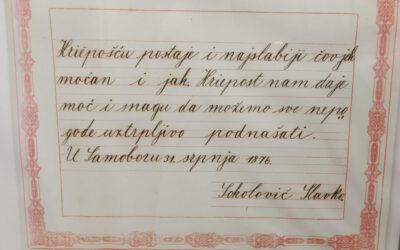 Kriepošću postaje i najslabiji čovjek
moćan i jak. Kriepost nam daje
moć i magu da možemo sve nepo=
gode uztrpljivo podnašati.
U Samoboru 31. srpnja 1876.
Sokolović Slavko.